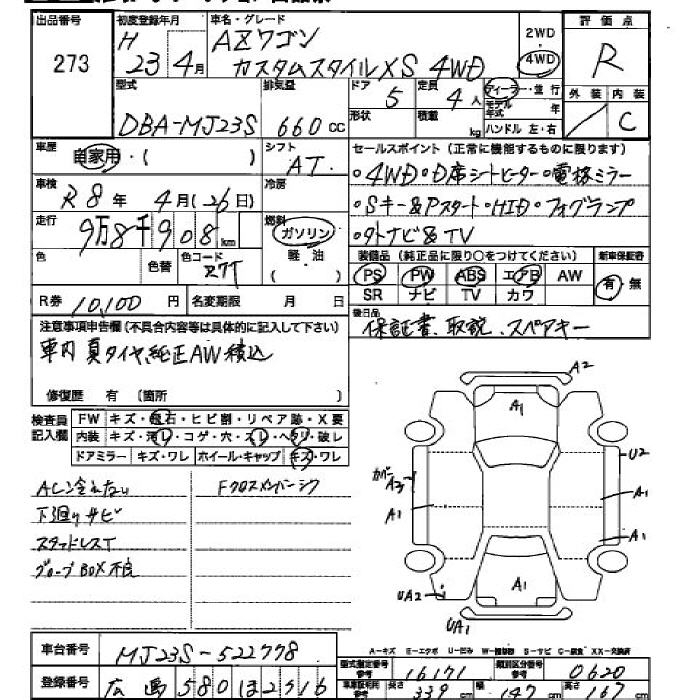 出品番号 初度登録年月 車名・グレード 評価点
273 H 23年 4月 AZワゴン カスタムスタイルXS 4WD 2WD 4WD R
型式 排気量 ドア 定員 ディーラー・並行 外装 内装
DBA-MJ23S 660cc 5 4人 モデル年式 年 C
形状 積載 kg ハンドル 左・右
車歴 自家用・( ) シフト AT セールスポイント(正常に機能するものに限ります)
車検 R8年 4月(26日) 冷房 ・4WD・D席シートヒーター・電格ミラー
走行 9万8千908km 燃料 ガソリン ・Sキー&Pスタート・HID・フォグランプ
軽油 ・外ナビ&TV
色 色替 色コード Z7T 装備品(純正品に限り○をつけてください) 新車保証書
PS PW ABS エアB AW 有・無
R券 10,100円 名変期限 月 日 SR ナビ TV カワ
注意事項申告欄(不具合内容等は具体的に記入して下さい) 後日品
車内 真タイヤ、純正AW積込 保証書、取説、スペアキー
修復歴 有(箇所 )
検査員記入欄 FW キズ・飛石・ヒビ割・リペア跡・X要
内装 キズ・汚レ・コゲ・穴・スレ・ヘタリ・破レ
ドアミラー キズ・ワレ ホイール・キャップ キズ・ワレ
A2
A1
U2
カバーA3
A1
A1
A1
A1
UA2
UA1
ACン冷れない Fクロスメンバーシワ
下廻りサビ
スタッドレスT
グローブBOX不良
A-キズ E-エクボ U-凹み W-補修跡 S-サビ C-腐食 XX-交換済
車台番号 MJ23S-522778 型式指定番号参考 16171 類別区分番号参考 0620
登録番号 広島 580 ほ 2516 車庫証明用参考 長さ 339cm 幅 147cm 高さ 167cm